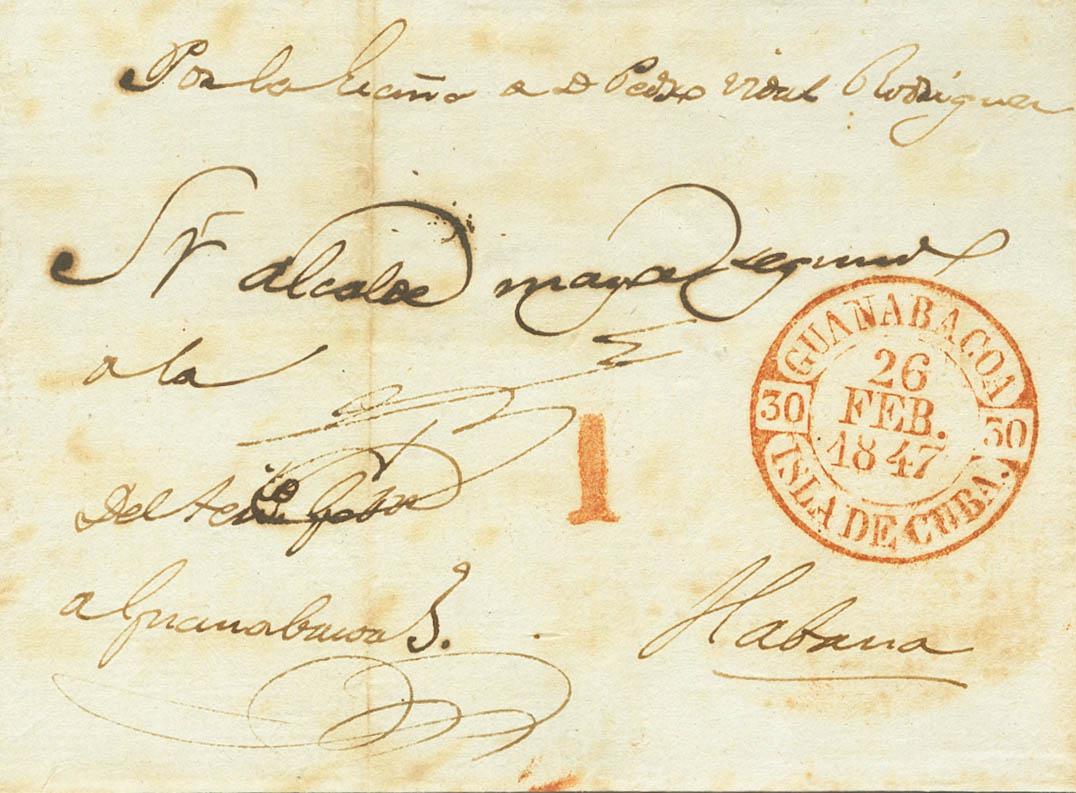 Por la Escaño a D Pedro Vidal Rodriguez
Sr alcalde mayor segundo
a la
1
GUANABACOA
30 26 30
FEB.
1847
ISLA DE CUBA.
Del
a Guanabacoa
Habana